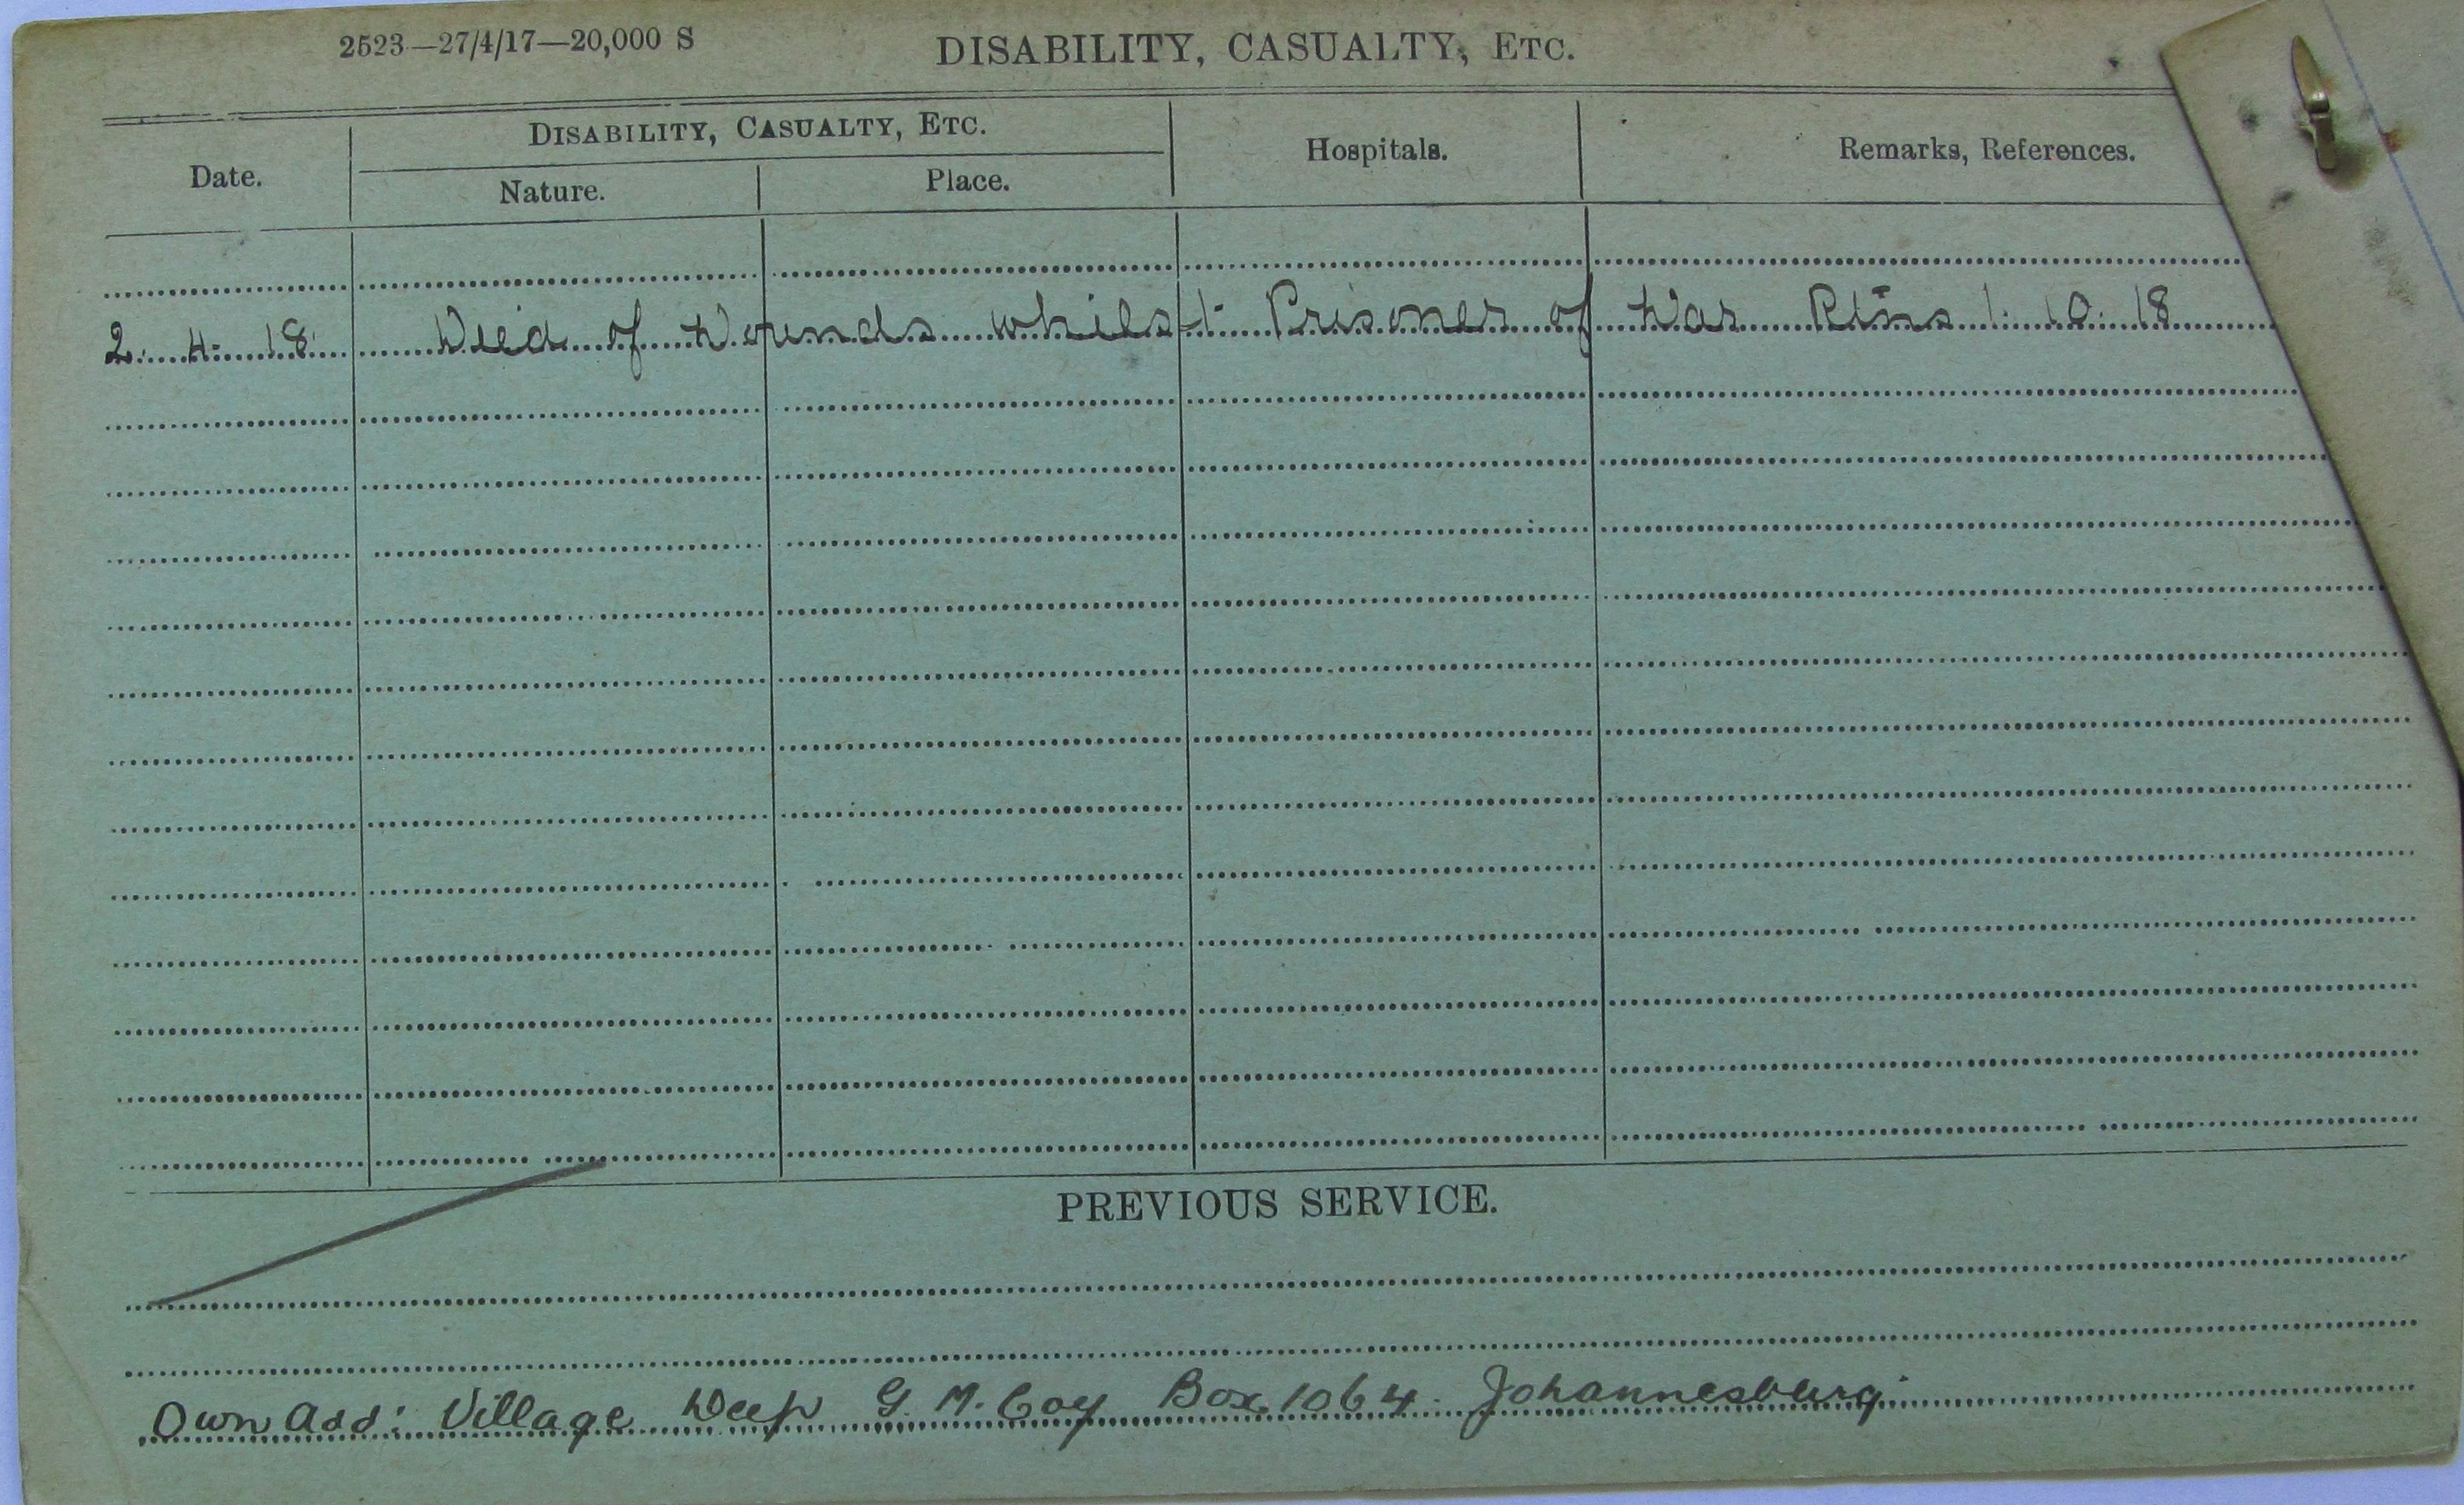 2523—27/4/17—20,000 S
DISABILITY, CASUALTY, ETC.
Date.
DISABILITY, CASUALTY, ETC.
Nature.
Place.
Hospitals.
Remarks, References.
2. 4. 18. Died of Wounds whilst Prisoner of War Rtns 1. 10. 18
PREVIOUS SERVICE.
Own Add: Village Deep G. M. Coy Box 1064. Johannesburg.